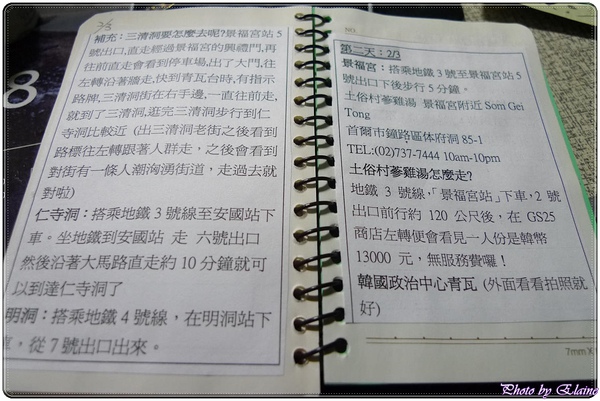 2/3
補充：三清洞要怎麼去呢?景福宮站 5
號出口,直走經過景福宮的興禮門,再
往前直走會看到停車場,出了大門,往
左轉沿著牆走,快到青瓦台時,有指示
路牌,三清洞街在右手邊,一直往前走,
就到了三清洞,逛完三清洞步行到仁
寺洞比較近 (出三清洞老街之後看到
路標往左轉跟著人群走，之後會看到
對街有一條人潮洶湧街道，走過去就
對啦)
仁寺洞：搭乘地鐵 3 號線至安國站下
車。坐地鐵到安國站 走 六號出口
然後沿著大馬路直走約 10 分鐘就可
以到達仁寺洞了
明洞：搭乘地鐵 4 號線，在明洞站下
車，從 7 號出口出來。
NO.
第二天：2/3
景福宮：搭乘地鐵 3 號至景福宮站 5
號出口下後步行 5 分鐘。
土俗村蔘雞湯 景福宮附近 Som Gei
Tong
首爾市鐘路區体府洞 85-1
TEL:(02)737-7444 10am-10pm
土俗村蔘雞湯怎麼走?
地鐵 3 號線,「景福宮站」下車，2 號
出口前行約 120 公尺後，在 GS25
商店左轉便會看見一人份是韓幣
13000 元，無服務費囉！
韓國政治中心青瓦 (外面看看拍照就
好)
7mm X
8
Photo by Elaine